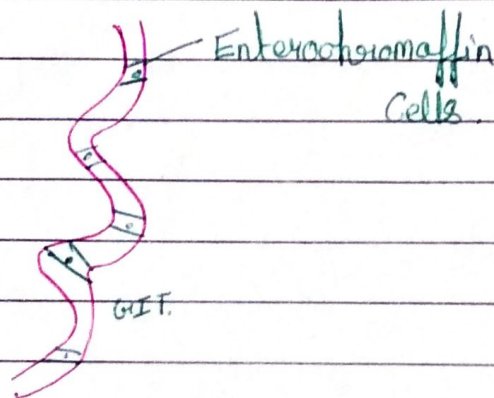 Enterochromaffin
Cells.
GIT.